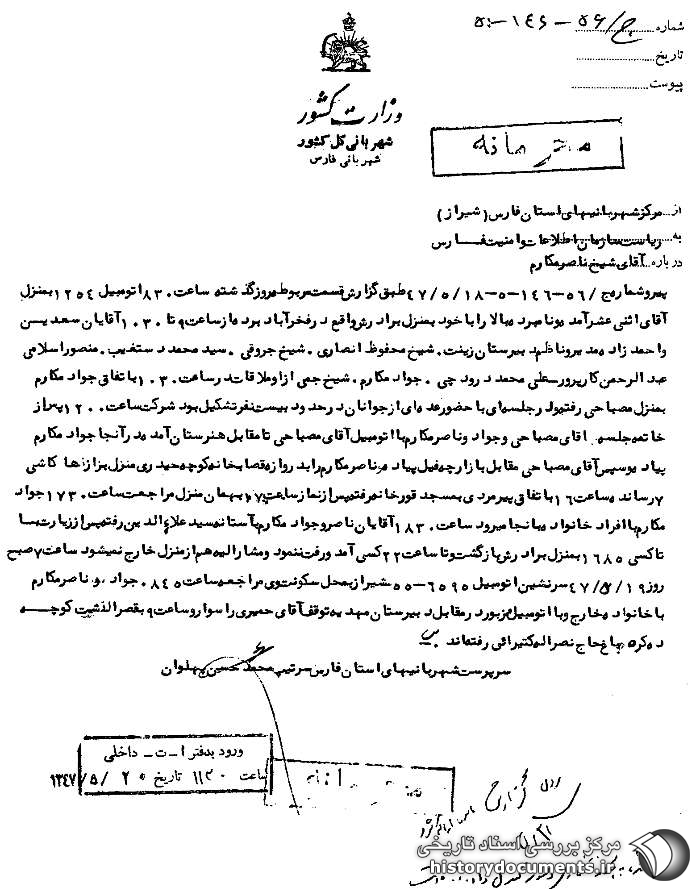 شماره ج/ ۵۶ - ۱۴۶ - ۵
تاریخ
پیوست
وزارت کشور
شهربانی کل کشور
شهربانی فارس
محرمانه
از مرکز شهربانیهای استان فارس (شیراز)
به ریاست سازمان اطلاعات و امنیت فارس
درباره آقای شیخ ناصر مکارم
پیرو شماره ج / ۵۶-۱۴۶-۵-۴۷/۵/۱۸ طبق گزارش قسمت مربوط روز گذشته ساعت ۸۳۰ اتومبیل ۱۲۵۴ بمنزل
آقای اثنی عشر آمد و نامبرده بالا را با خود بمنزل برادرش واقع در فخرآباد برد و از ساعت ۹ تا ۱۰۳۰ آقایان سعدیسن
و احمدزاده مدیر و ناظم دبیرستان زینت. شیخ محفوظ انصاری. شیخ جروقی. سید محمد دستغیب. منصور اسلامی
عبدالرحمن کارپرور سطی محمد درودچی. جواد مکارم. شیخ جمی از او ملاقات در ساعت ۱۰۳۰ باتفاق جواد مکارم
بمنزل مصباحی رفته و در جلسه‌ای با حضور عده‌ای از جوانان در حدود بیست نفر تشکیل بود شرکت ساعت ۱۲۰۰ پس از
خاتمه جلسه آقای مصباحی و جواد و ناصر مکارم با اتومبیل آقای مصباحی تا مقابل هنرستان آمده در آنجا جواد مکارم
پیاده و سپس آقای مصباحی مقابل بازارچه فیل پیاده و ناصر مکارم را بدروازه قصابخانه کوچه حیدری منزل بزازها کاشی
۷ رسانده ساعت ۱۶ باتفاق پیرمردی بمسجد قورخانه رفته پس از نماز ساعت ۱۷ بهمان منزل مراجعت ساعت ۱۷۳۰ جواد
مکارم با افراد خانواده بآنجا میرود ساعت ۱۸۳۰ آقایان ناصر و جواد مکارم بآستانه سید علاءالدین رفته پس از زیارت با
تاکسی ۱۶۸۵ بمنزل برادرش بازگشت و تا ساعت ۲۲ کسی آمد و رفت ننمود و مشارالیه هم از منزل خارج نمیشود ساعت ۷ صبح
روز ۴۷/۵/۱۹ سرنشین اتومبیل ۶۵۹۵-۵۵ شیراز بمحل سکونت وی مراجعه ساعت ۸۴۵ جواد و ناصر مکارم
با خانواده خارج و با اتومبیل مزبور در مقابل دبیرستان مهدیه توقف آقای حمیری را سوار و ساعت ۹ بقصرالدشت کوچه
ده کره باغ حاج نصراله کتیرائی رفته‌اند
سرپرست شهربانیهای استان فارس سرتیپ محمدحسین پهلوان
ورود بدفتر ا-ت- داخلی
ساعت ۱۱۳۰ تاریخ ۲۰ /۵/ ۱۳۴۷
محرمانه
گزارش
مرکز بررسی اسناد تاریخی
historydocuments.ir